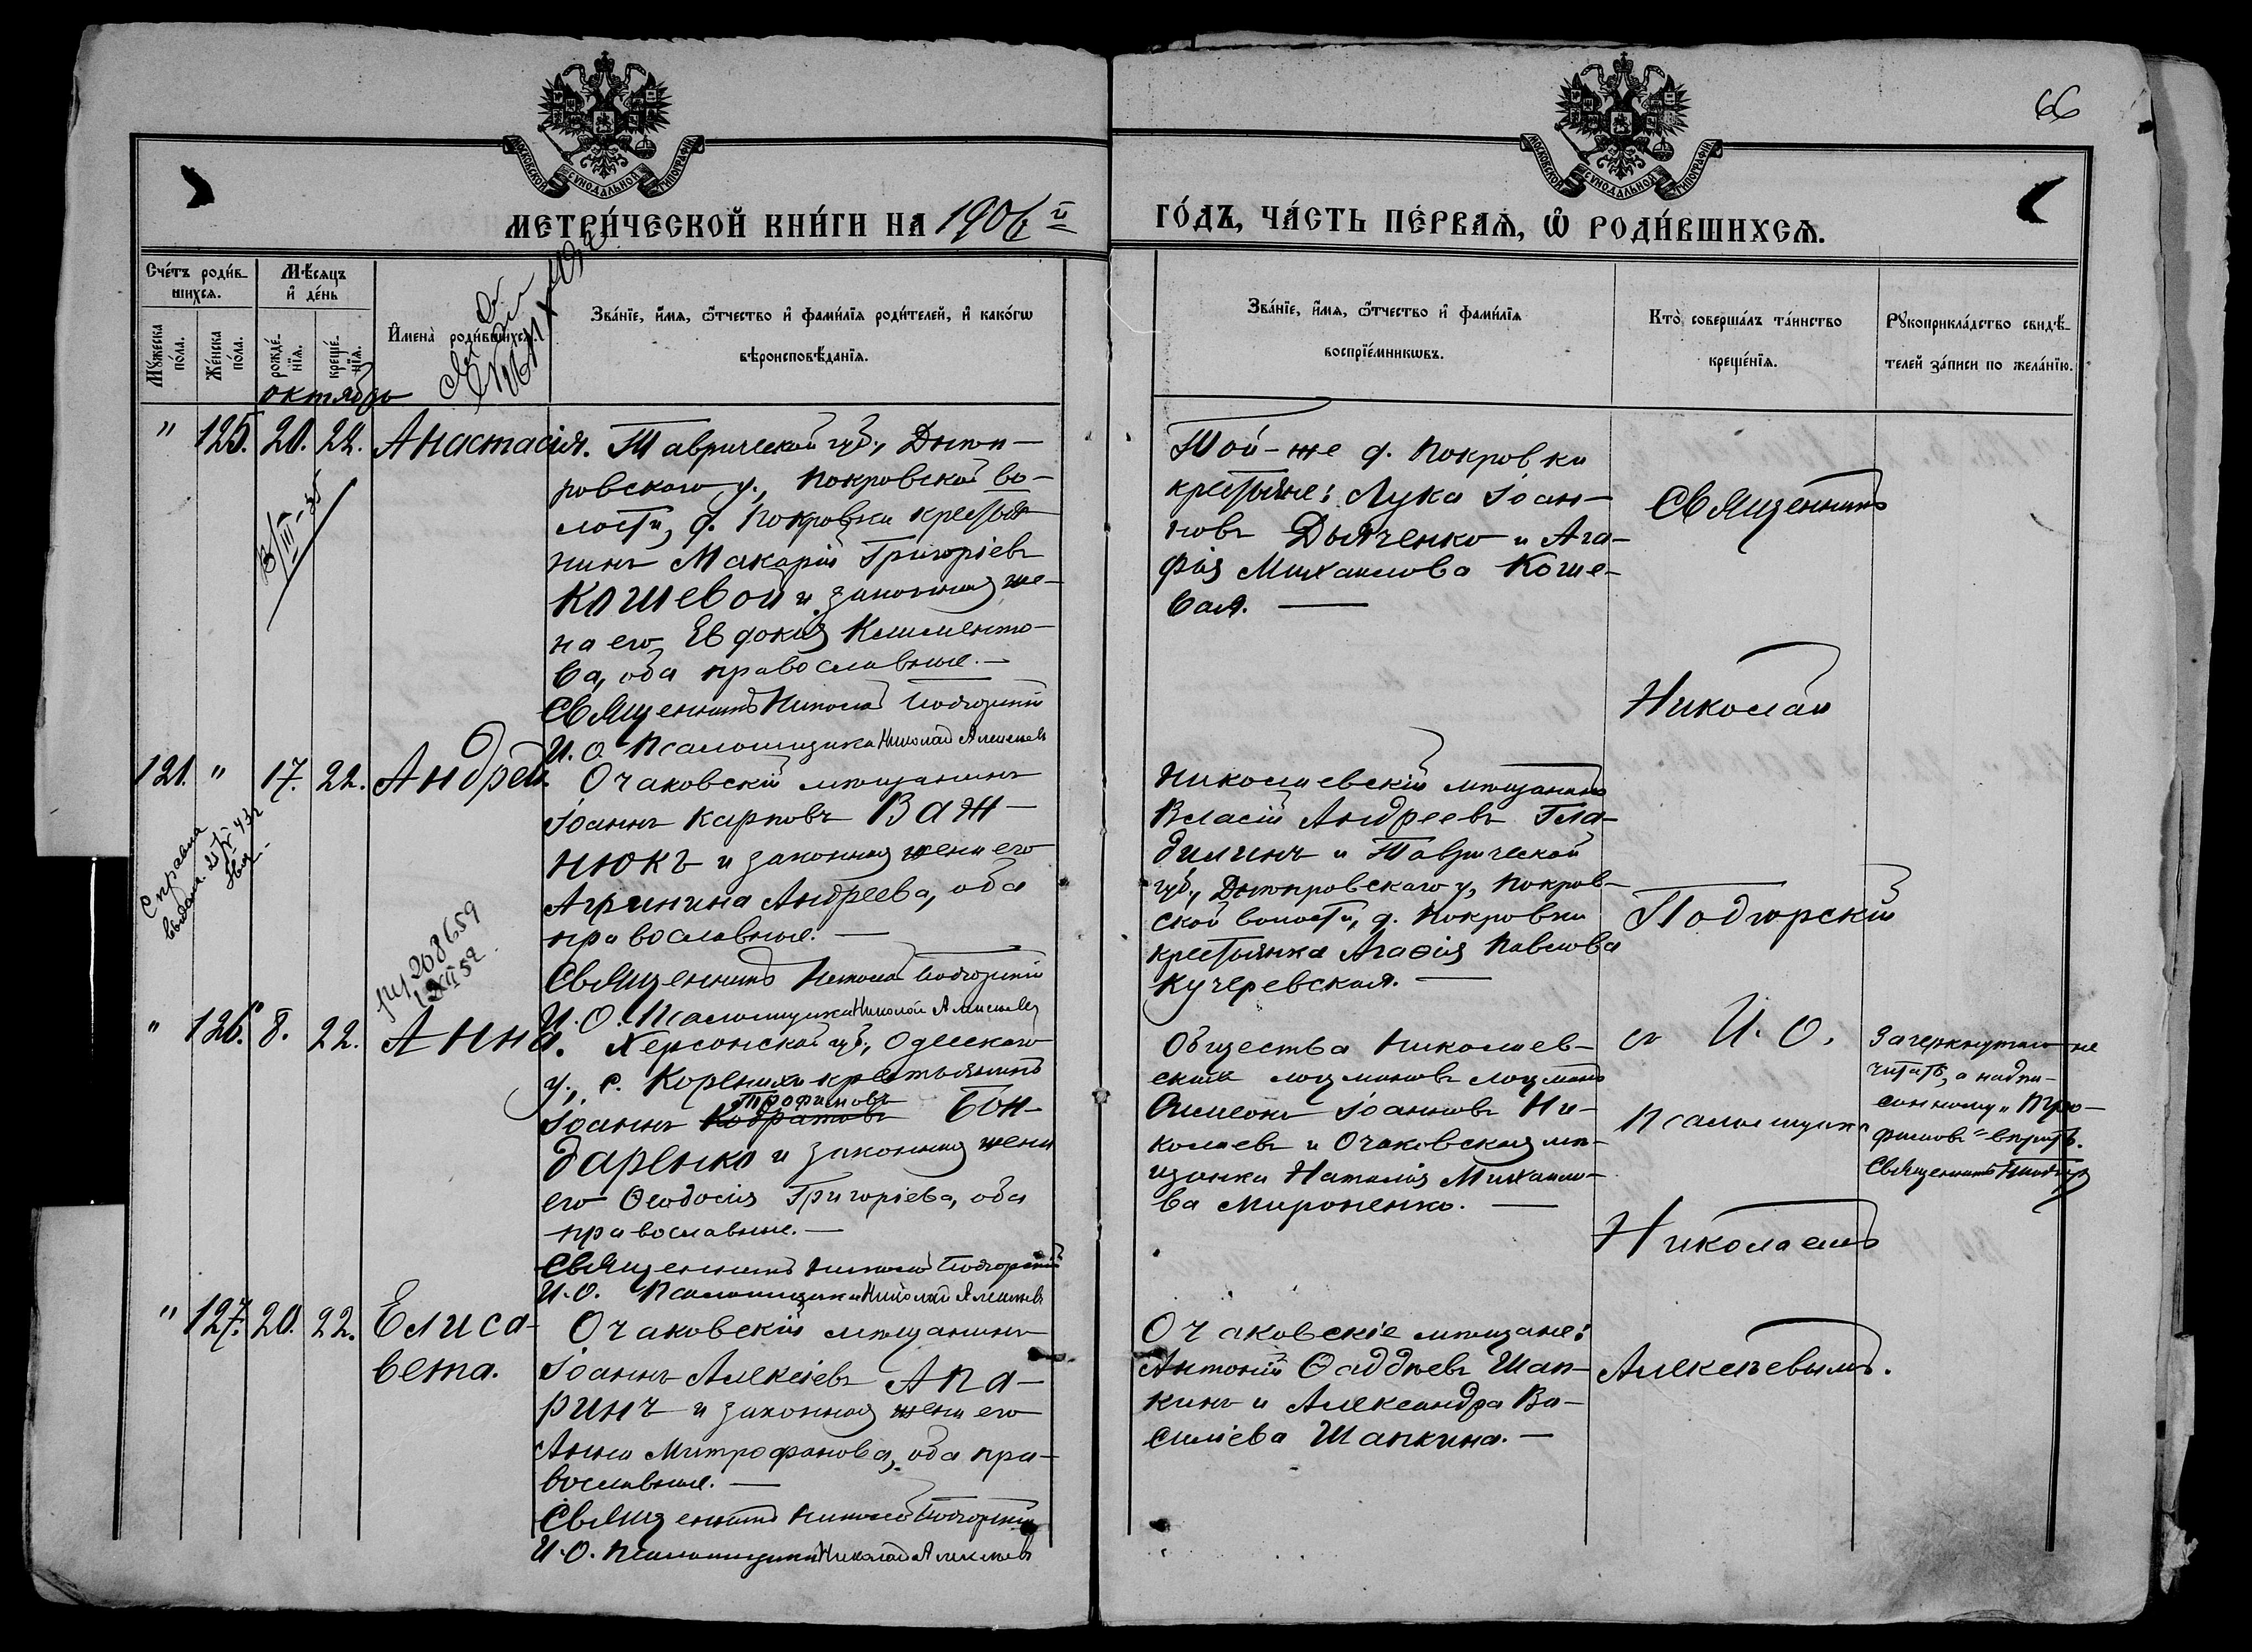 66
МОСКОВСКОЙ СѴНОДАЛЬНОЙ ТИПОГРАФІИ
МОСКОВСКОЙ СѴНОДАЛЬНОЙ ТИПОГРАФІИ
МЕТРИ́ЧЕСКОЙ КНИ́ГИ НА 1906 й
ГО́ДЪ, ЧА́СТЬ ПЕ́РВАѦ, Ѡ҆ РОДИ́ВШИХСѦ.
Сче́тъ роди́в-
шихсѧ.
Мѣ́сѧцъ
и҆ де́нь
Мꙋ́жеска
по́ла.
Же́нска
по́ла.
рожде́-
нїѧ.
креще́-
нїѧ.
И҆мена̀ роди́вшихсѧ.
Зва́нїе, и҆́мѧ, ѻ҆́тчество и҆ фами́лїѧ роди́телей, и҆ како́гѡ
вѣроисповѣ́данїѧ.
Зва́нїе, и҆́мѧ, ѻ҆́тчество и҆ фами́лїѧ
воспрїе́мникѡвъ.
Кто̀ соверша́лъ та́инство
креще́нїѧ.
Рꙋкоприкла́дство свидѣ́-
телей за́писи по жела́нїю.
октябрь
" 125. 20. 22. Анастасія. Таврической губ., Днѣп-
ровскаго у., Покровской во-
лости, д. Покровки крестья-
нинъ Макарій Григоріевъ
Кошевой и законная же-
на его Евдокія Климento-
ва, оба православные. —
Священникъ Николай Подгорскій
И. О. Псаломщика Николай Алексѣевъ
13/III-35
Той-же д. Покровки
крестьяне: Лука Іоан-
новъ Дьяченко и Ага-
фія Михаилова Коше-
вая. —
Священникъ
Николай
121. " 17. 22. Андрей. Очаковскій мѣщанинъ
Іоаннъ Карповъ Важ-
нюкъ и законная жена его
Агрипина Андреева, оба
православные. —
Священникъ Николай Подгорскій
И. О. Псаломщика Николай Алексѣевъ
Справка
208659
XII 52
Николаевскій мѣщанинъ
Власій Андреевъ Гла-
дилинъ и Таврической
губ., Днѣпровскаго у., Покров-
ской волости, д. Покровки
крестьянка Агаѳія Павлова
Кучеревская. —
Подгорскій
" 126. 8. 22. Анна. Херсонской губ., Одесскаго
у., с. Коренихи крестьянинъ
Трофимовъ
Іоаннъ Кодратовъ Бон-
даренко и законная жена
его Ѳеодосія Григоріева, оба
православные. —
Священникъ Николай Подгорскій
И. О. Псаломщика Николай Алексѣевъ
Общества Николаев-
скихъ лоцмановъ лоцманъ
Симеонъ Іоанновъ Ни-
колаевъ и Очаковская мѣ-
щанка Наталія Михаило-
ва Мироненко. —
съ И. О.
Псаломщика
Николаемъ
Зачеркнутаго не
читать, а надпи-
санному „Тро-
фимовъ" вѣрить.
Священникъ
" 127. 20. 22. Елиса-
вета.
Очаковскій мѣщанинъ
Іоаннъ Алексіевъ Апа-
ринъ и законная жена его
Анна Митрофанова, оба пра-
вославные. —
Священникъ Николай Подгорскій
И. О. Псаломщика Николай Алексѣевъ
Очаковскіе мѣщане:
Антоній Ѳаддѣевъ Шап-
кинъ и Александра Ва-
силіева Шапкина. —
Алексѣевымъ.